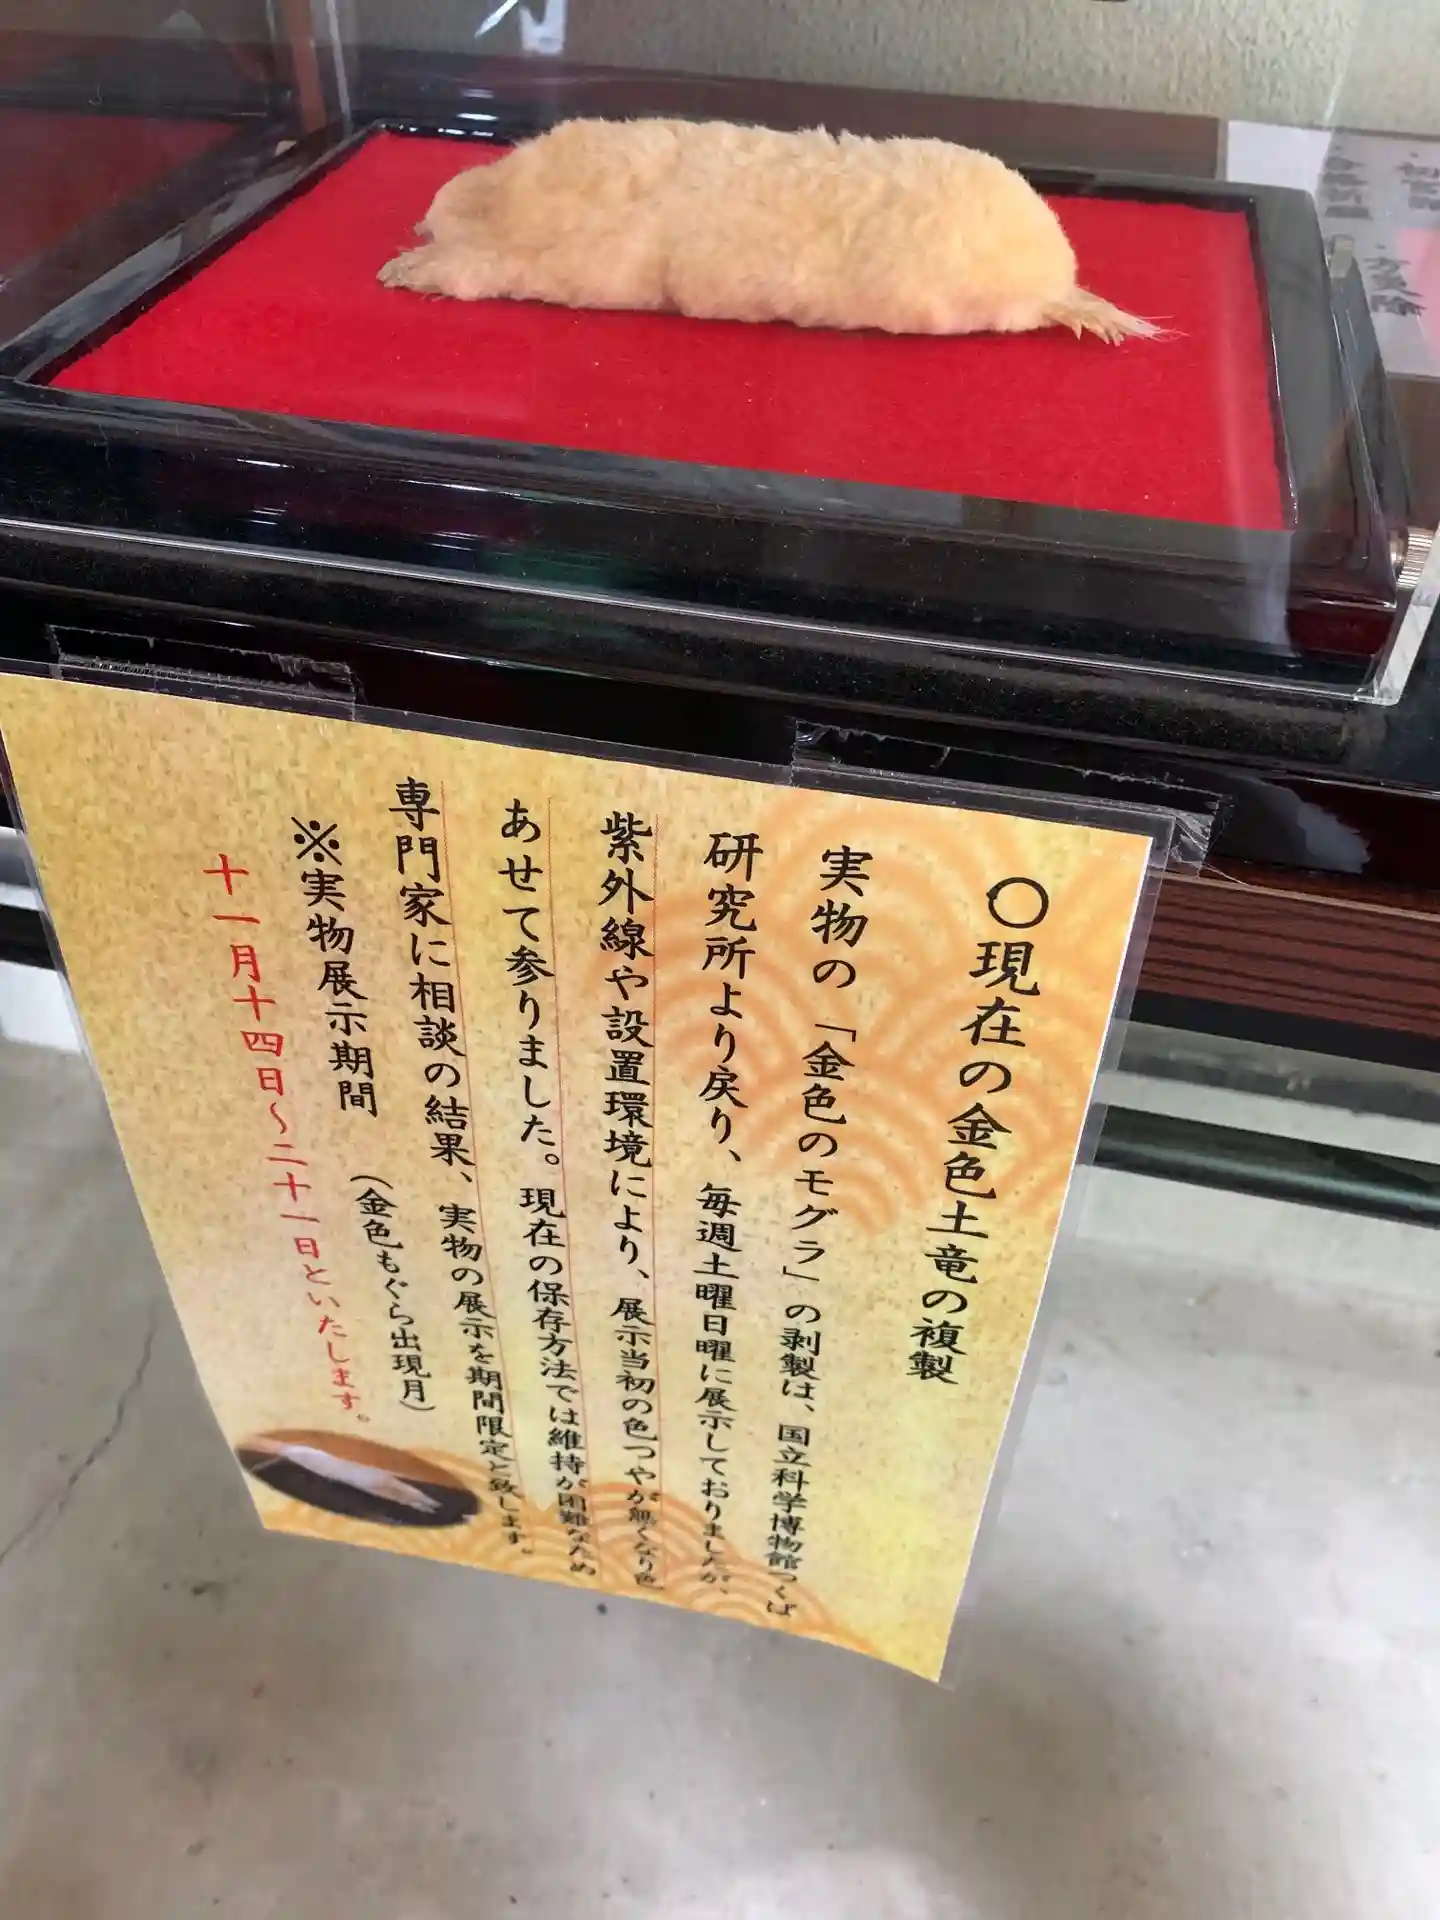 ○現在の金色土竜の複製
実物の「金色のモグラ」の剥製は、国立科学博物館つくば
研究所より戻り、毎週土曜日曜に展示しておりましたが、
紫外線や設置環境により、展示当初の色つやが無くなり色
あせて参りました。現在の保存方法では維持が困難なため
専門家に相談の結果、実物の展示を期間限定と致します。
※実物展示期間 (金色もぐら出現月)
十一月十四日~二十一日といたします。